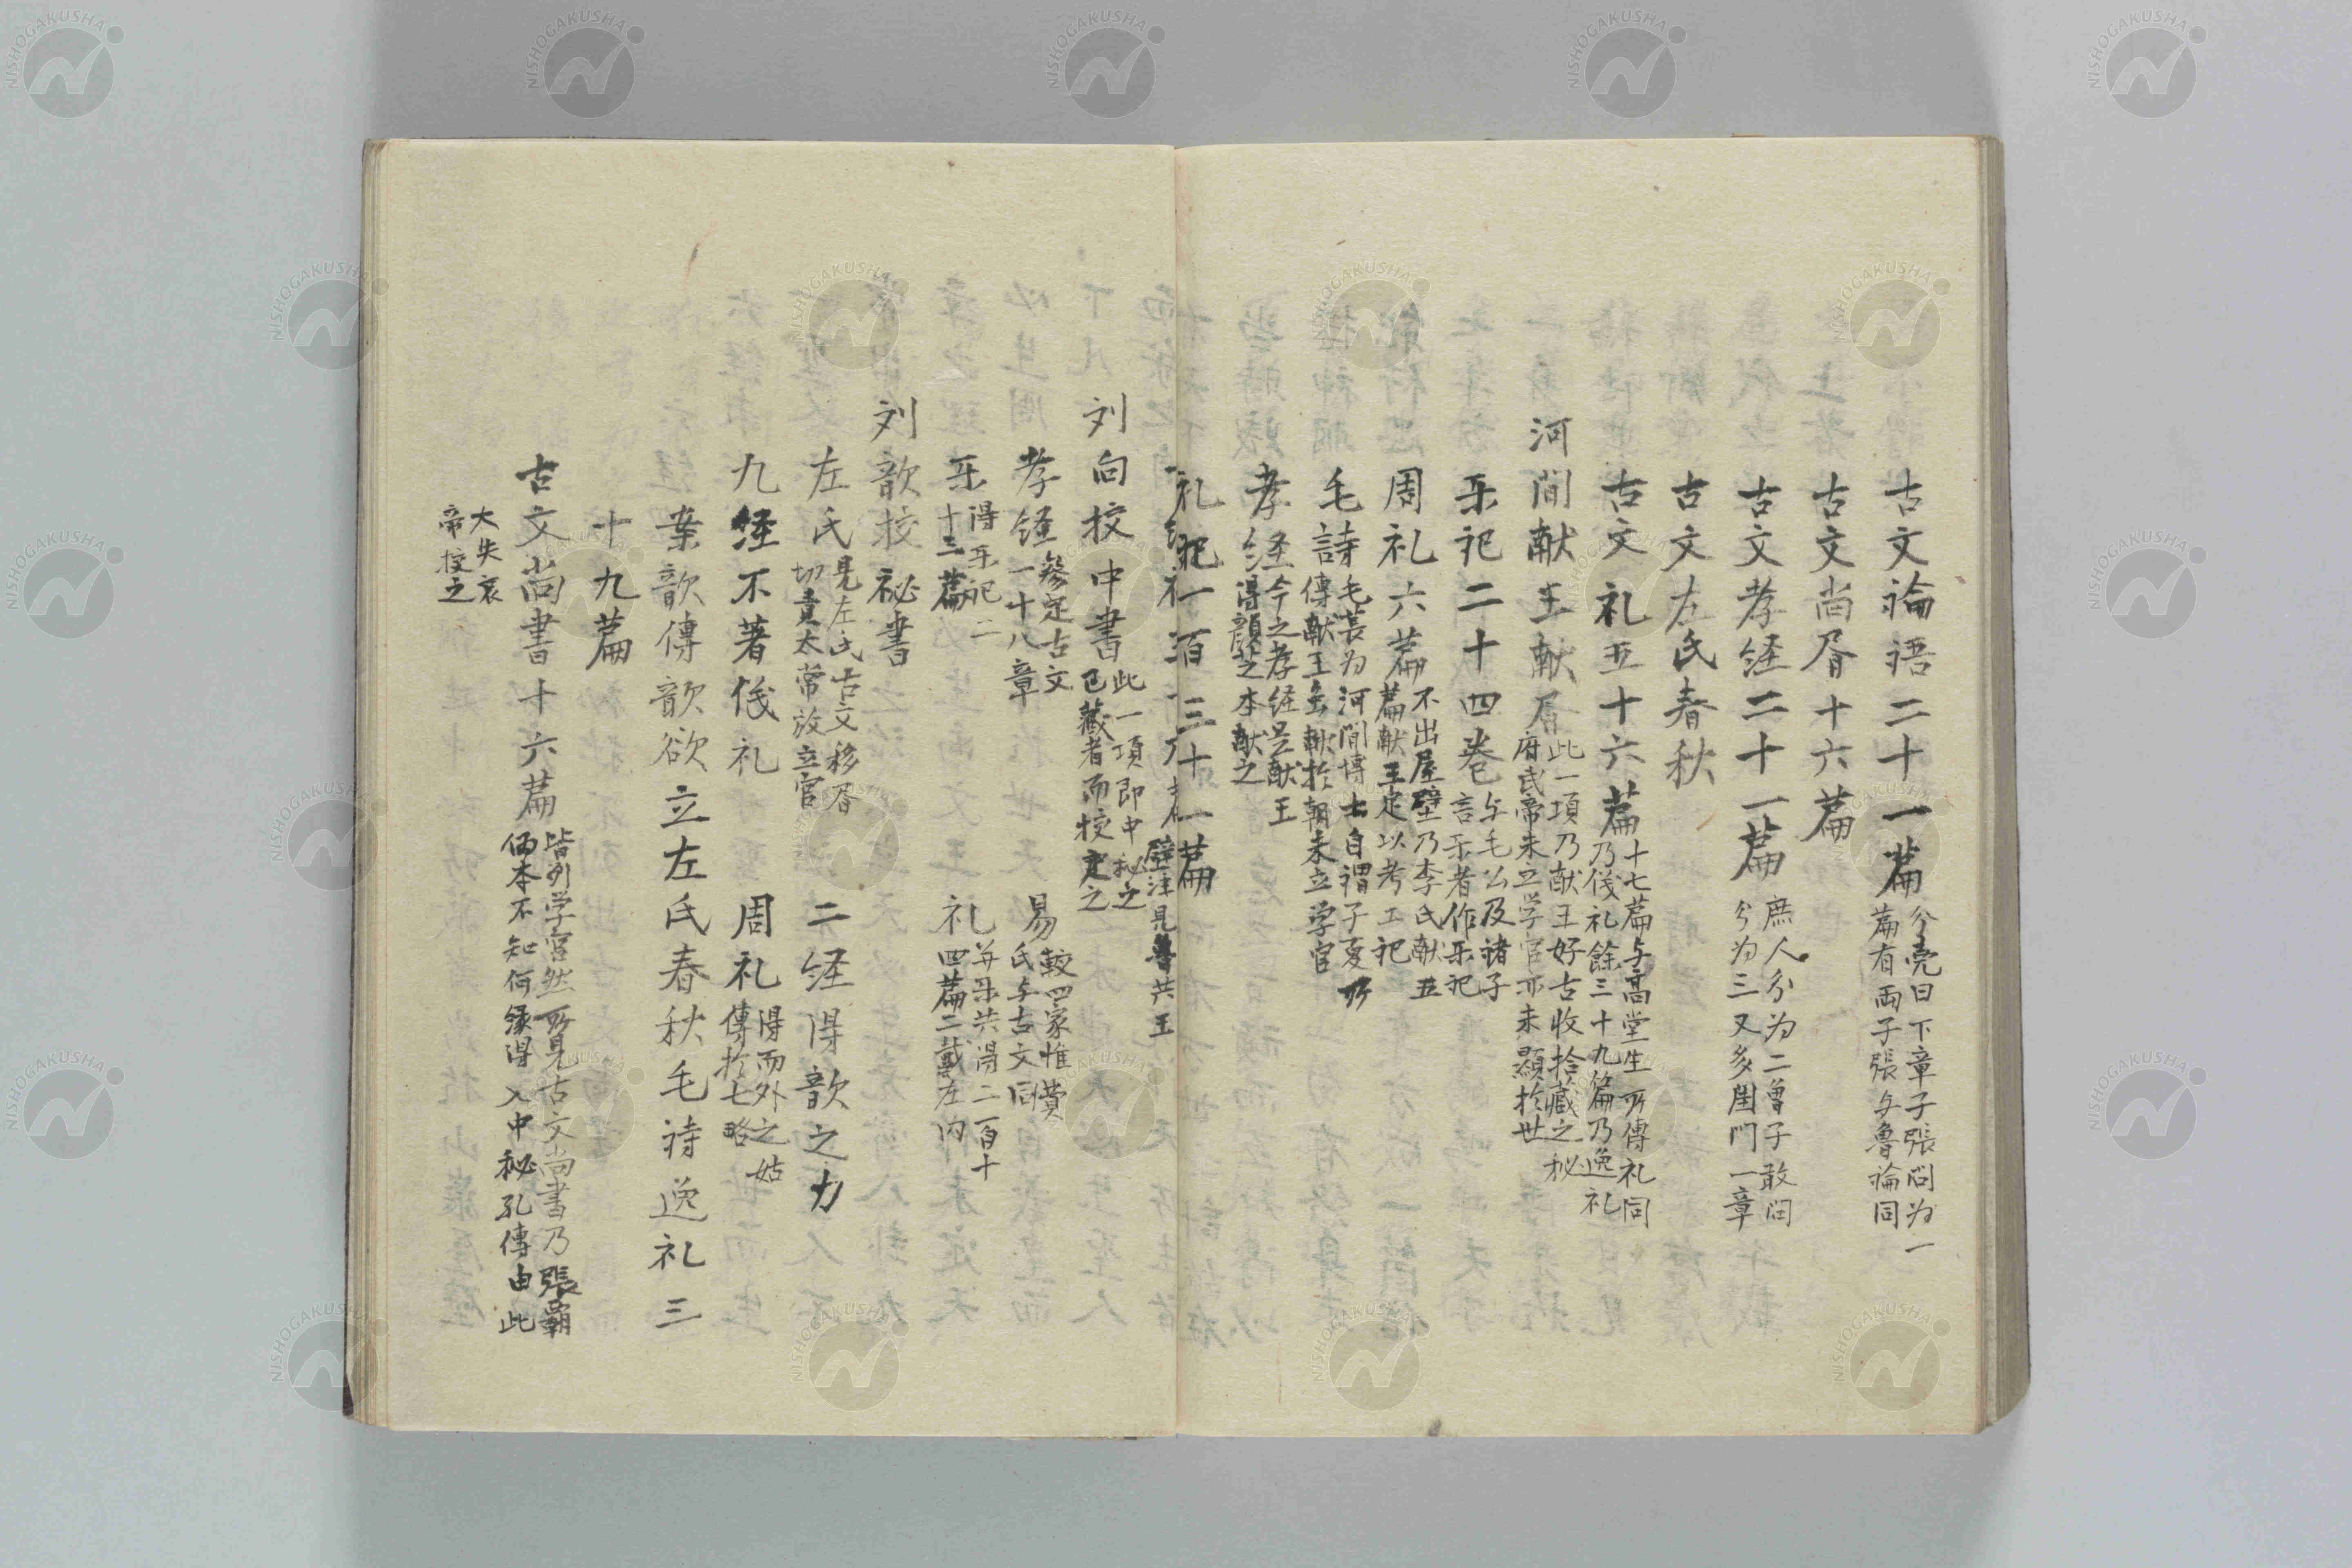 古文論語二十一篇 分堯曰下章子張問为一
篇有両子張与魯論同
古文尚书十六篇
古文孝経二十一篇 庶人分为二曽子敢问
分为三又多閨门一章
古文左氏春秋
古文礼五十六篇 十七篇与髙堂生所傳礼同
乃仪礼餘三十九篇乃逸礼
河間献王献书 此一項乃献王好古收拾藏之秘
府武帝未立学官亦未顕於世
乐记二十四巻 与毛公及諸子
言乐者作乐记
周礼六篇 不出屋壁乃李氏献五
篇献王定以考工记
毛詩 毛萇为河間博士自謂子夏所
傳献王 献於朝未立学官
孝経 今之孝経是献王
得顔芝本献之
礼记一百三十一篇 壁注見魯共王
刘向挍中書 此一項即中秘之
已藏者而挍定之
孝経 參定古文
一十八章
易 較四家惟費
氏与古文同
乐 得乐记二
十三篇
礼 并乐共得二百十
四篇二戴在内
刘歆挍祕書
左氏 見左氏古文移书
切責太常放立官
二経得歆之力
九経不著仪礼
周礼 得而外之姑
傳於七略
案歆傳歆欲立左氏春秋毛詩逸礼三
十九篇
古文尚書十六篇 皆列学官然所見古文尚書乃張霸
偽本不知何縁得入中秘孔傳由此
大失哀
帝挍之